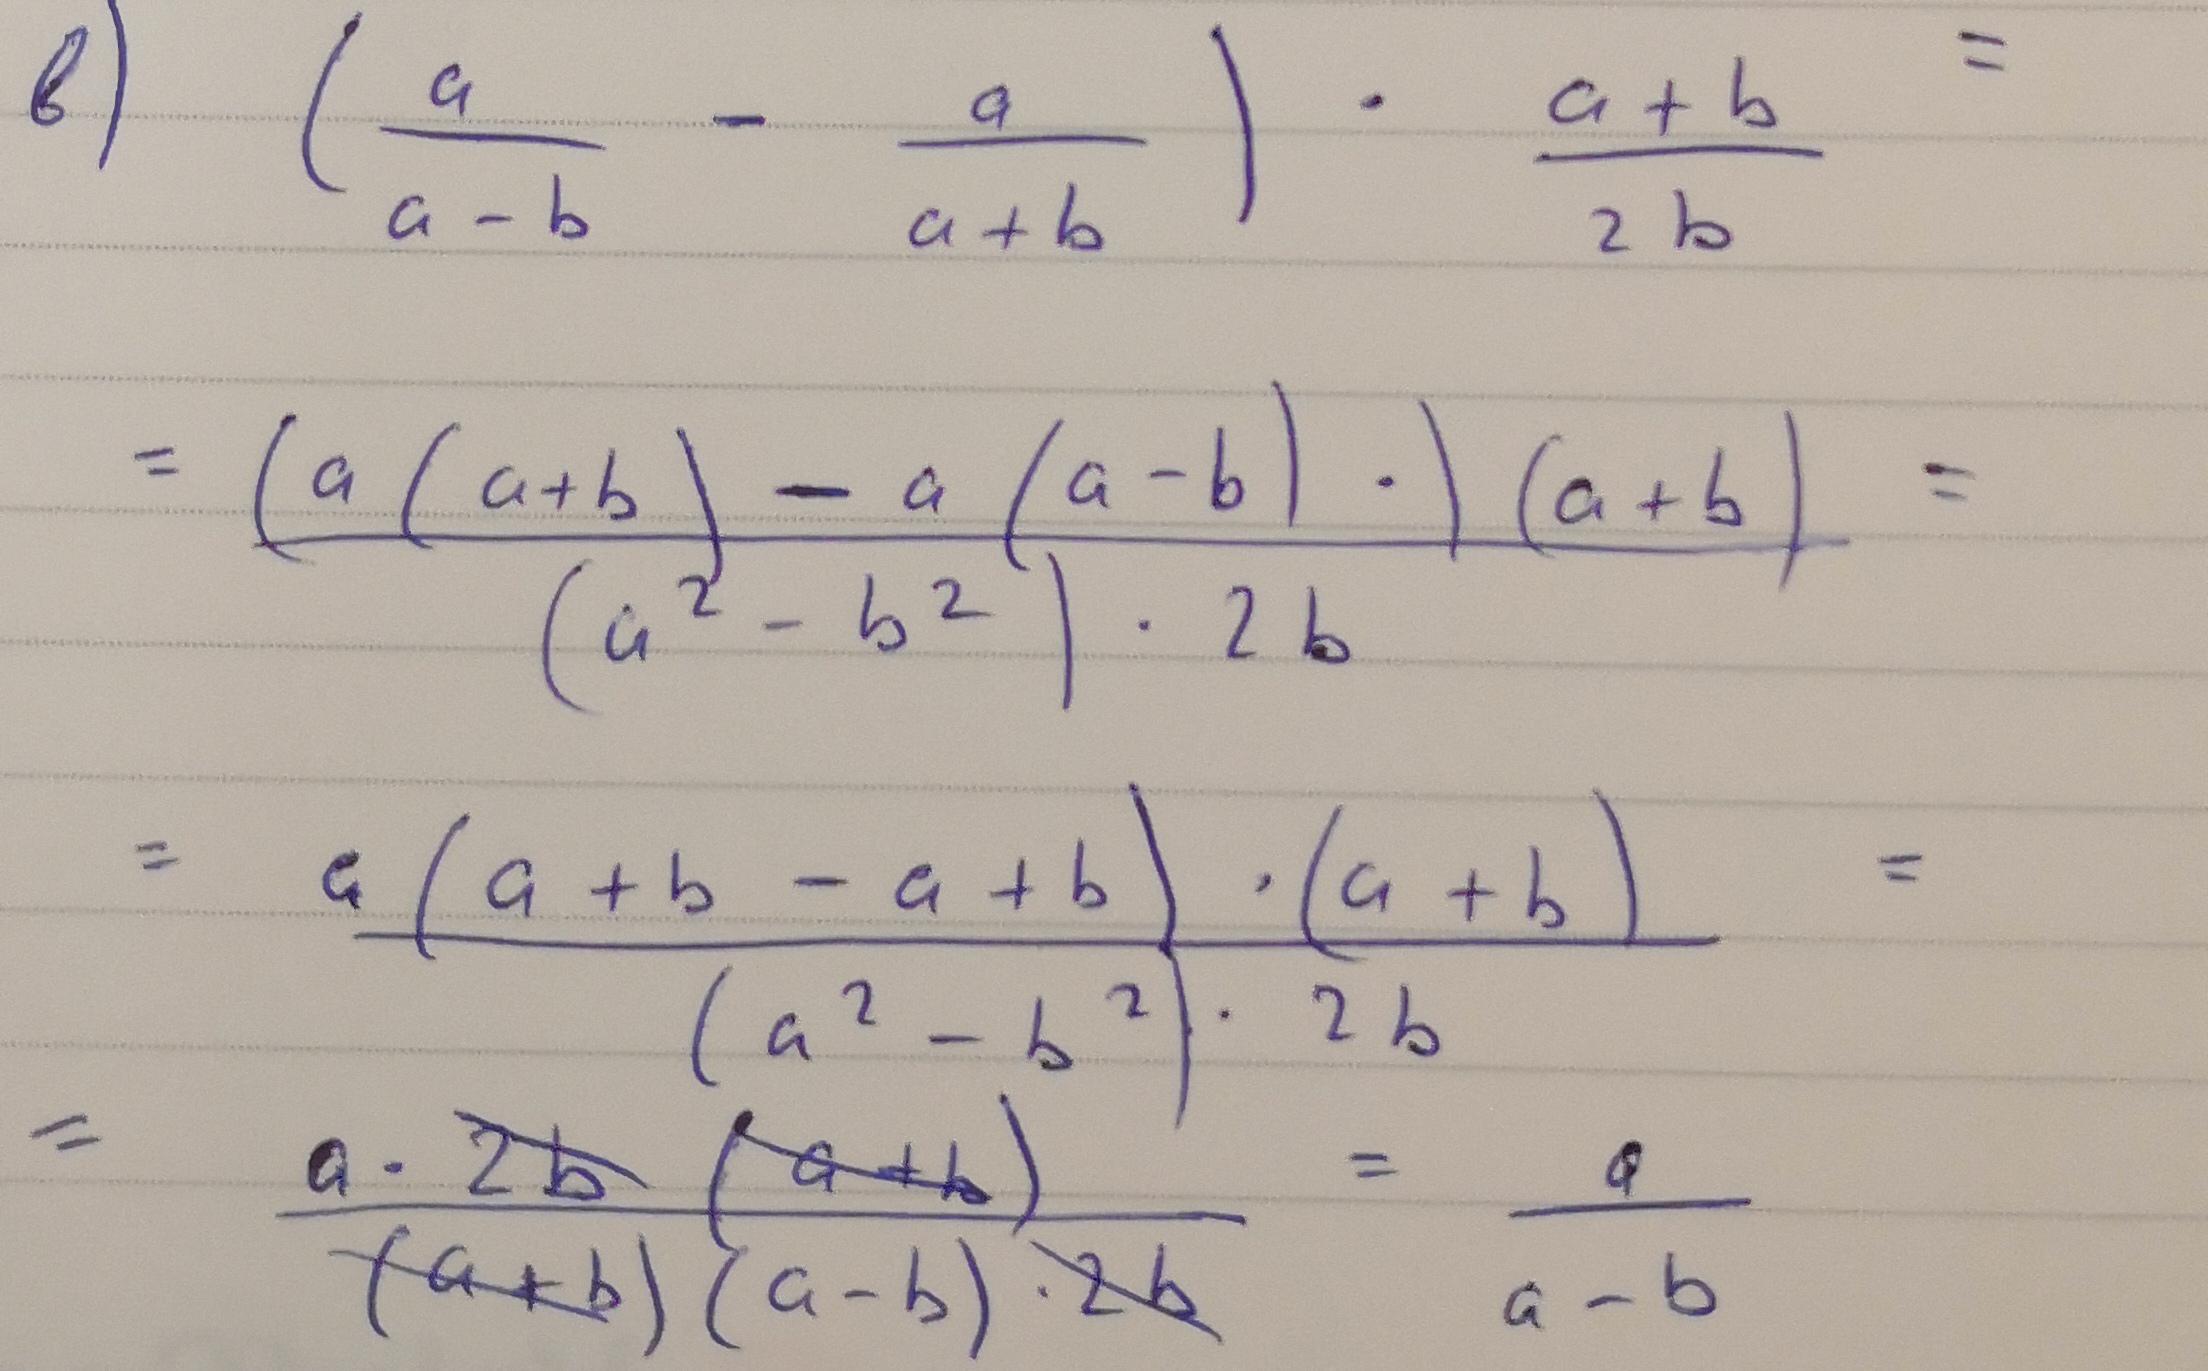 в) (a/(a-b) - a/(a+b)) · (a+b)/(2b) =
= ((a(a+b) - a(a-b) ·)(a+b))/((a²-b²) · 2b) =
= (a(a+b-a+b) · (a+b))/((a²-b²) · 2b) =
= (a · 2b (a+b))/((a+b)(a-b) · 2b) = a/(a-b)